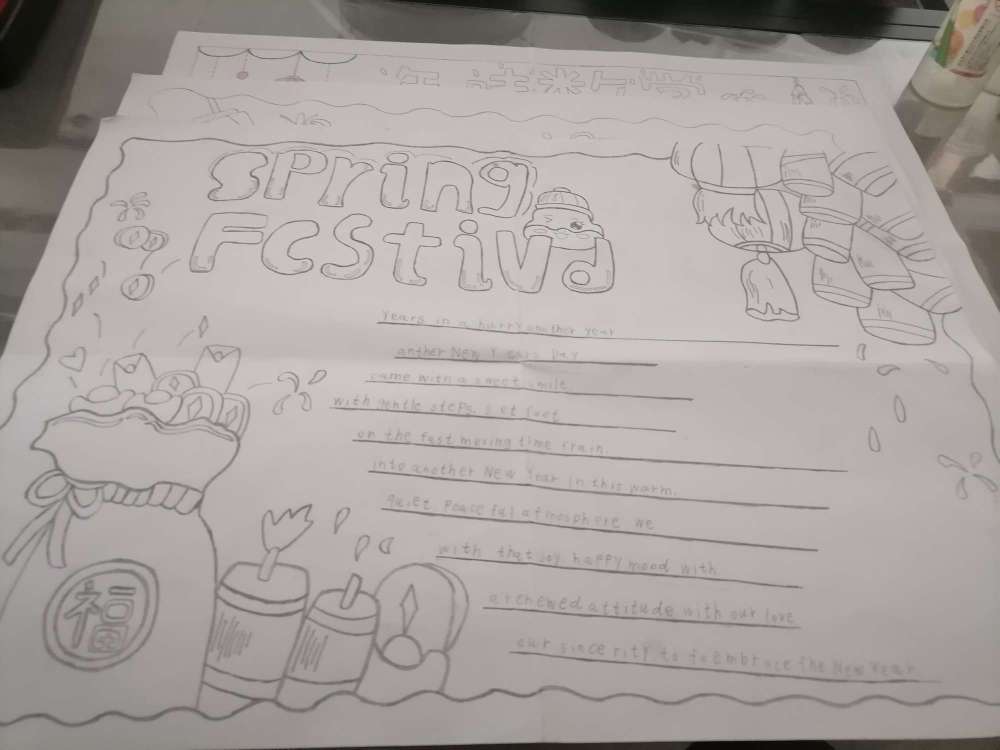 Spring
Festival
years in a hurry another year
anther New Years Day
came with a sweet smile
with gentle steps. set foot
on the fast moving time train.
into another New Year in this warm.
quiet peaceful atmosphere we
with that joy happy mood with
a renewed attitude with our love
our sincerity to to embrace the New Year
福